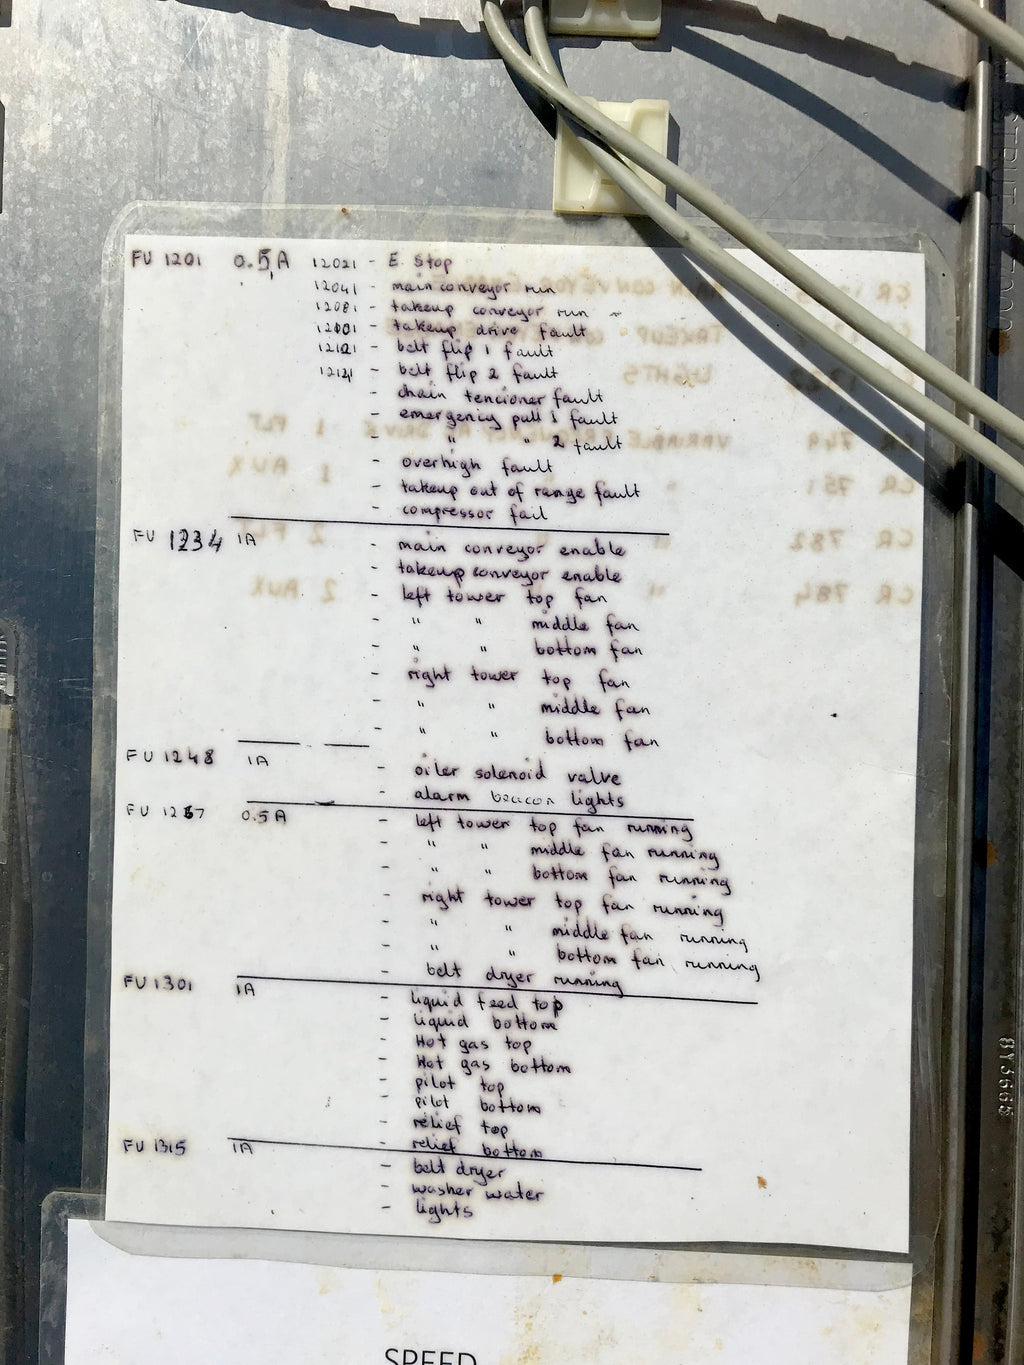 FU 1201 0.5A 12021 - E. Stop
12041 - main conveyor run
12081 - takeup conveyor run
12101 - takeup drive fault
12121 - belt flip 1 fault
12141 - belt flip 2 fault
- chain tencioner fault
- emergency pull 1 fault
- " " 2 fault
- overhigh fault
- takeup out of range fault
- compressor fail
FU 1234 1A - main conveyor enable
- takeup conveyor enable
- left tower top fan
- " " middle fan
- " " bottom fan
- right tower top fan
- " " middle fan
- " " bottom fan
FU 1248 1A - oiler solenoid valve
- alarm beacon lights
FU 1267 0.5A - left tower top fan running
- " " middle fan running
- " " bottom fan running
- right tower top fan running
- " " middle fan running
- " " bottom fan running
- belt dryer running
FU 1301 1A - liquid feed top
- liquid bottom
- Hot gas top
- Hot gas bottom
- pilot top
- pilot bottom
- relief top
- relief bottom
FU 1315 1A - belt dryer
- washer water
- lights
SPEED